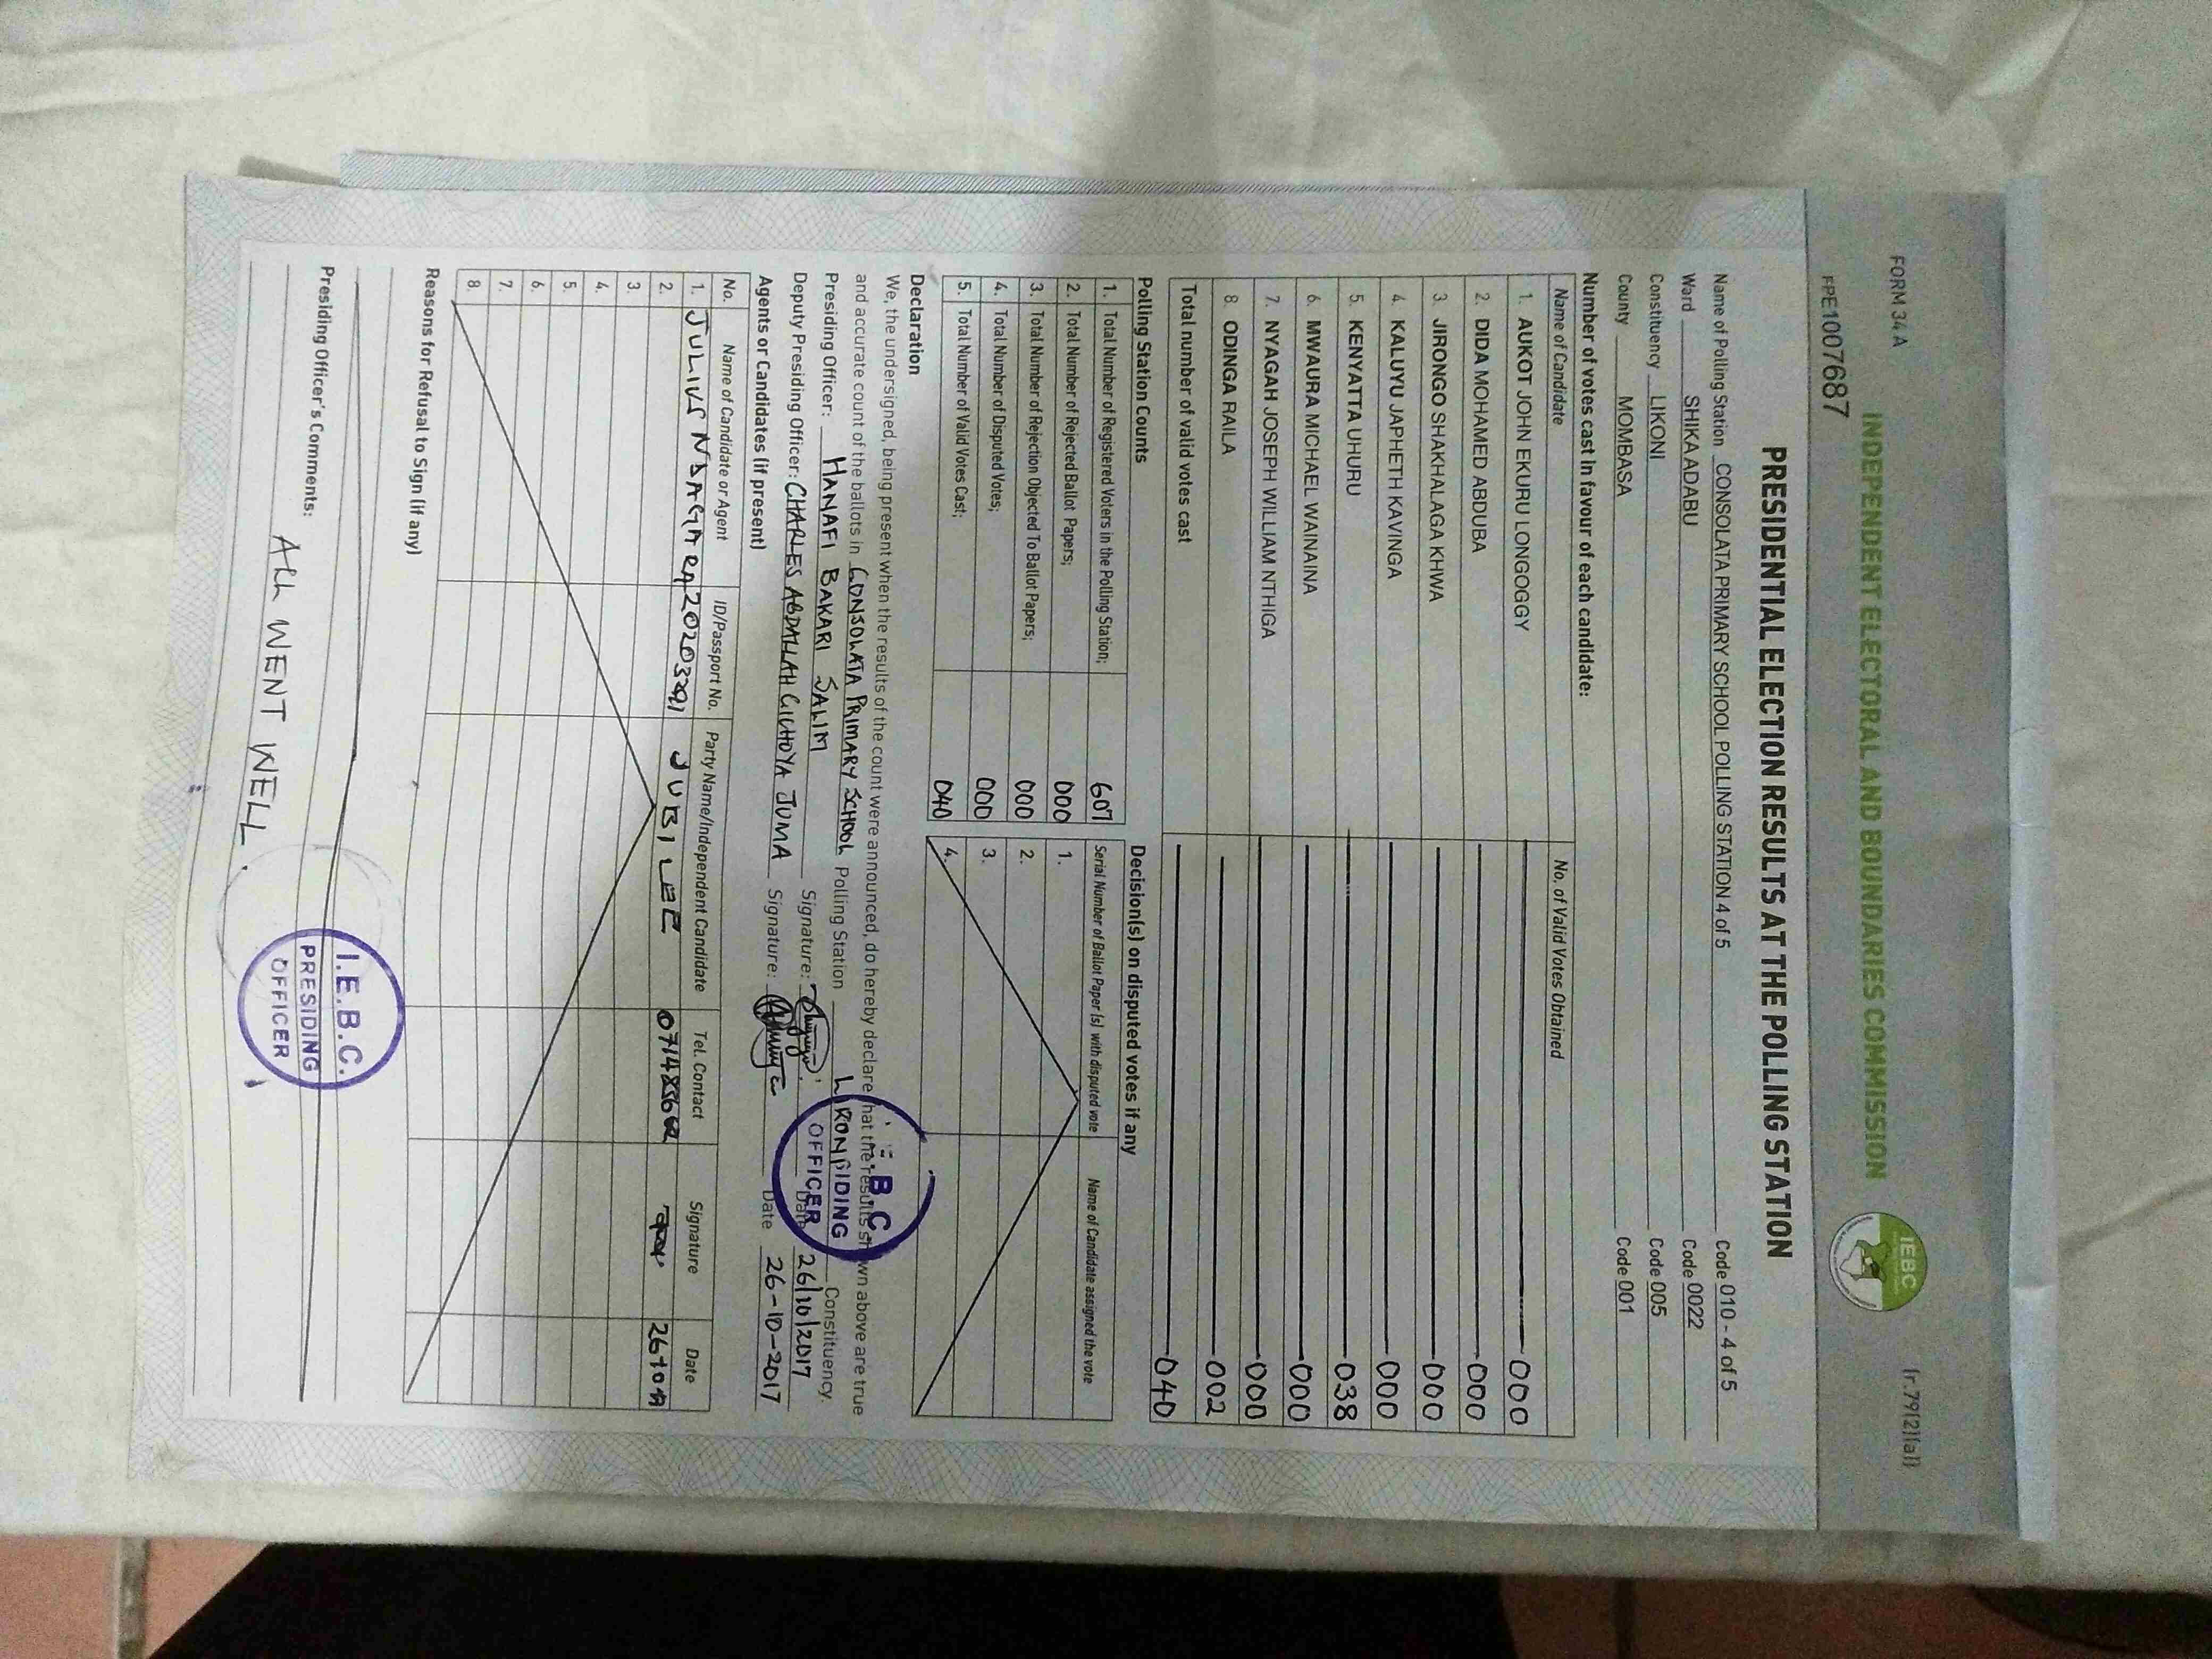 FORM 34 A
(r.79(2)(a))
INDEPENDENT ELECTORAL AND BOUNDARIES COMMISSION
IEBC
FPE1007687
PRESIDENTIAL ELECTION RESULTS AT THE POLLING STATION
Name of Polling Station CONSOLATA PRIMARY SCHOOL POLLING STATION 4 of 5 Code 010 - 4 of 5
Ward SHIKA ADABU Code 0022
Constituency LIKONI Code 005
County MOMBASA Code 001
Number of votes cast in favour of each candidate:
Name of Candidate No. of Valid Votes Obtained
1. AUKOT JOHN EKURU LONGOGGY 000
2. DIDA MOHAMED ABDUBA 000
3. JIRONGO SHAKHALAGA KHWA 000
4. KALUYU JAPHETH KAVINGA 000
5. KENYATTA UHURU 038
6. MWAURA MICHAEL WAINAINA 000
7. NYAGAH JOSEPH WILLIAM NTHIGA 000
8. ODINGA RAILA 002
Total number of valid votes cast 040
Polling Station Counts Decision(s) on disputed votes if any
1. Total Number of Registered Voters in the Polling Station; 607 Serial Number of Ballot Paper (s) with disputed vote Name of Candidate assigned the vote
2. Total Number of Rejected Ballot Papers; 000 1.
3. Total Number of Rejection Objected To Ballot Papers; 000 2.
4. Total Number of Disputed Votes; 000 3.
5. Total Number of Valid Votes Cast; 040 4.
Declaration
We, the undersigned, being present when the results of the count were announced, do hereby declare that the results shown above are true
and accurate count of the ballots in CONSOLATA PRIMARY SCHOOL Polling Station Constituency.
Presiding Officer: HANAFI BAKARI SALIM Signature: Date 26/10/2017
Deputy Presiding Officer: CHARLES ABDALLAH JUMA Signature: Date 26-10-2017
B.C.
OFFICER
Agents or Candidates (if present)
No. Name of Candidate or Agent ID/Passport No. Party Name/Independent Candidate Tel. Contact Signature Date
1. JULIUS JUBILEE
2.
3.
4.
5.
6.
7.
8.
Reasons for Refusal to Sign (if any)
Presiding Officer's Comments:
ALL WENT WELL.
I.E.B.C.
PRESIDING
OFFICER